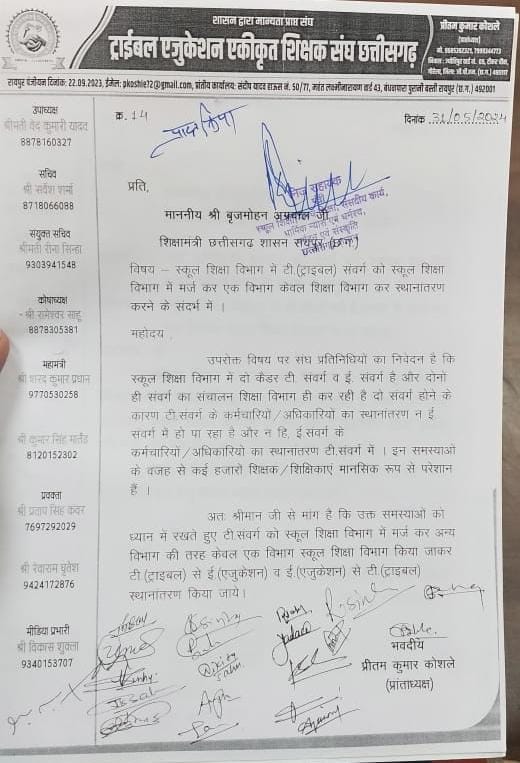 शासन द्वारा मान्यता प्राप्त संघ
ट्राईबल एजुकेशन एकीकृत शिक्षक संघ छत्तीसगढ़
प्रीतम कुमार कोशले
(प्रांताध्यक्ष)
रायपुर पंजीयन दिनांक: 22.09.2023, ईमेल: pkoshle72@gmail.com, प्रांतीय कार्यालय: संदीप यादव हाऊस नं. 50/77, महंत लक्ष्मीनारायण वार्ड 43, बंधवापारा पुरानी बस्ती रायपुर (छ.ग.) 492001
उपाध्यक्ष
श्रीमती वेद कुमारी यादव
8878160327
सचिव
श्री सर्वेश शर्मा
8718066088
संयुक्त सचिव
श्रीमती रीना सिन्हा
9303941548
कोषाध्यक्ष
श्री रामेश्वर साहू
8878305381
महामंत्री
श्री शरद कुमार प्रधान
9770530258
श्री कुमार सिंह मार्तंड
8120152302
प्रवक्ता
श्री प्रताप सिंह कंवर
7697292029
श्री रेवाराम घृतेश
9424172876
मीडिया प्रभारी
श्री विकास शुक्ला
9340153707
क्र. 14
दिनांक 31/05/2024
प्रति,
माननीय श्री बृजमोहन अग्रवाल जी
शिक्षामंत्री छत्तीसगढ़ शासन रायपुर (छ.ग.)
निज सहायक
विषय – स्कूल शिक्षा विभाग में टी.(ट्राइबल) संवर्ग को स्कूल शिक्षा
विभाग में मर्ज कर एक विभाग केवल शिक्षा विभाग कर स्थानांतरण
करने के संदर्भ में ।
महोदय,
उपरोक्त विषय पर संघ प्रतिनिधियों का निवेदन है कि
स्कूल शिक्षा विभाग में दो कैडर टी. संवर्ग व ई. संवर्ग है और दोनो
ही संवर्ग का संचालन शिक्षा विभाग ही कर रही है दो संवर्ग होने के
कारण टी.संवर्ग के कर्मचारियों/अधिकारियों का स्थानांतरण न ई.
संवर्ग में हो पा रहा है और न हि, ई.संवर्ग के
कर्मचारियों/अधिकारियों का स्थानांतरण टी.संवर्ग में । इन समस्याओं
के वजह से कई हजारों शिक्षक/शिक्षिकाएं मानसिक रूप से परेशान
हैं ।
अतः श्रीमान जी से मांग है कि उक्त समस्याओं को
ध्यान में रखते हुए टी.संवर्ग को स्कूल शिक्षा विभाग में मर्ज कर अन्य
विभाग की तरह केवल एक विभाग स्कूल शिक्षा विभाग किया जाकर
टी.(ट्राइबल) से ई.(एजुकेशन) व ई.(एजुकेशन) से टी.(ट्राइबल)
स्थानांतरण किया जाये।
भवदीय
प्रीतम कुमार कोशले
(प्रांताध्यक्ष)